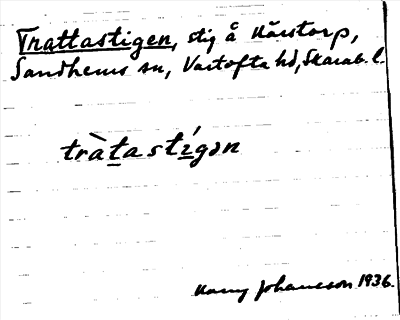 Trattastigen, stig å Kårstorp,
Sandhems sn, Vartofta hd, Skarab. l.
tràt̲a stí̲gən
Harry Johansson 1936.